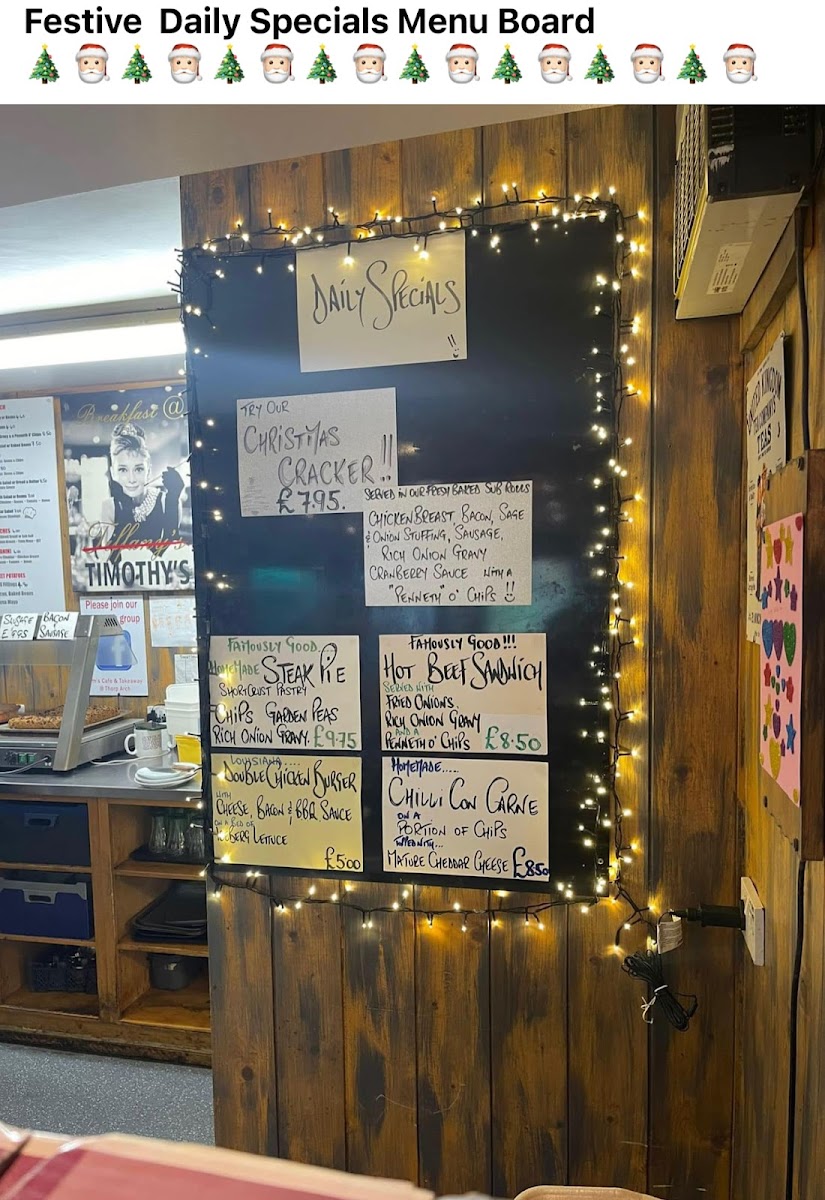 Festive Daily Specials Menu Board
DAILY SPECIALS !!
TRY OUR
CHRISTMAS
CRACKER!!
£7.95.
SERVED IN OUR FRESH BAKED SUB ROLLS
CHICKEN BREAST, BACON, SAGE
& ONION STUFFING, SAUSAGE,
RICH ONION GRAVY
CRANBERRY SAUCE WITH A
"PENNETH" O' CHIPS !!
FAMOUSLY GOOD..
HOMEMADE STEAK PIE
SHORTCRUST PASTRY
CHIPS GARDEN PEAS
RICH ONION GRAVY. £9.75
FAMOUSLY GOOD!!!
HOT BEEF SANDWICH
SERVED WITH
FRIED ONIONS.
RICH ONION GRAVY
AND A
PENNETH O' CHIPS £8.50
LOUISIANA....
DOUBLE CHICKEN BURGER
WITH
CHEESE, BACON & BBQ SAUCE
ON A BED OF
ICEBERG LETTUCE
£5.00
HOMEMADE.....
CHILLI CON CARNE
ON A
PORTION OF CHIPS
TOPPED WITH...
MATURE CHEDDAR CHEESE £8.50
Breakfast @
Tiffany's
TIMOTHY'S
Please join our
group
's Cafe & Takeaway
@ Thorp Arch
BACON
& SAUSAGE
TEAS